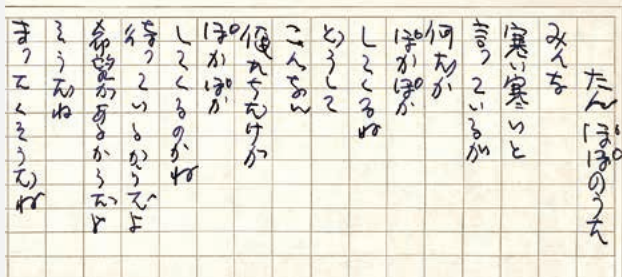 たんぽぽのうた
みんな
寒い寒いと
言っているが
何だか
ぽかぽか
してくるね
どうして
こんなに
俺たちだけが
ぽかぽか
してくるのかね
待っているからだよ
希望があるからだよ
そうだね
まったくそうだね